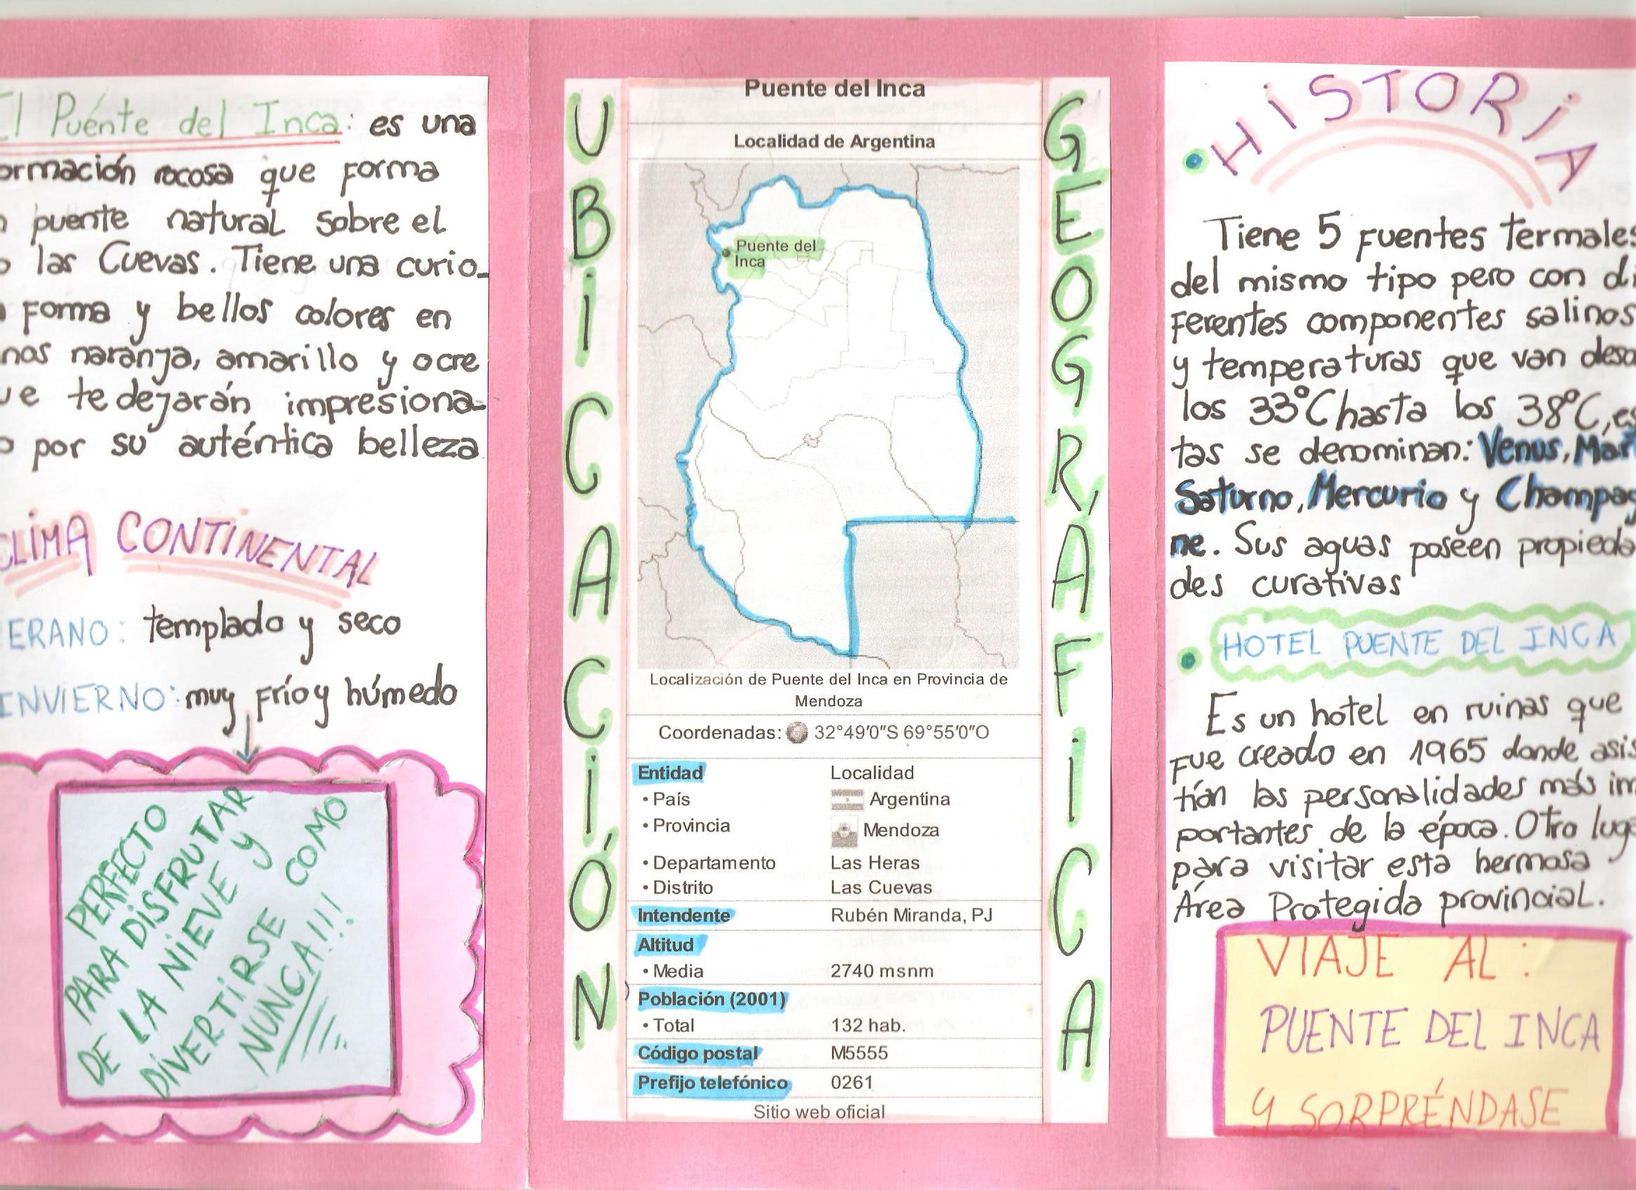 El Puente del Inca: es una
ormación rocosa que forma
puente natural sobre el
las Cuevas. Tiene una curio-
forma y bellos colores en
nos naranja, amarillo y ocre
ue te dejarán impresiona-
o por su auténtica belleza
CLIMA CONTINENTAL
ERANO: templado y seco
INVIERNO: muy frío y húmedo
PERFECTO
PARA DISFRUTAR
DE LA NIEVE Y
DIVERTIRSE COMO
NUNCA!!!
UBICACIÓN
Puente del Inca
Localidad de Argentina
Puente del
Inca
Localización de Puente del Inca en Provincia de
Mendoza
Coordenadas: 32°49′0″S 69°55′0″O
Entidad Localidad
• País Argentina
• Provincia Mendoza
• Departamento Las Heras
• Distrito Las Cuevas
Intendente Rubén Miranda, PJ
Altitud
• Media 2740 msnm
Población (2001)
• Total 132 hab.
Código postal M5555
Prefijo telefónico 0261
Sitio web oficial
GEOGRÁFICA
• HISTORIA
Tiene 5 fuentes termales
del mismo tipo pero con di
ferentes componentes salinos
y temperaturas que van desd
los 33°C hasta los 38°C, es
tas se denominan: Venus, Mar
Saturno, Mercurio y Champag
ne. Sus aguas poseen propieda
des curativas
• HOTEL PUENTE DEL INCA
Es un hotel en ruinas que
fue creado en 1965 donde asis
tían las personalidades más im
portantes de la época. Otro luga
para visitar esta hermosa
Área Protegida provincial.
VIAJE AL:
PUENTE DEL INCA
Y SORPRÉNDASE